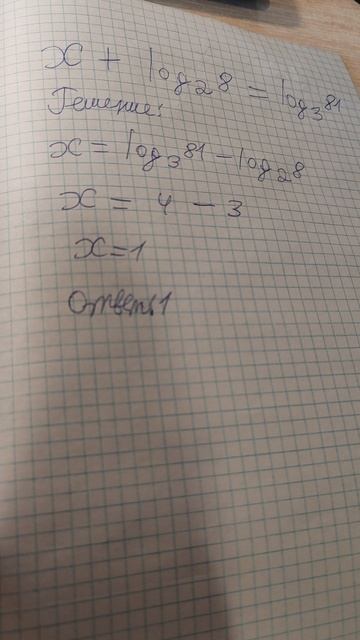 x + log₂8 = log₃81
Решение:
x = log₃81 - log₂8
x = 4 - 3
x = 1
Ответ: 1